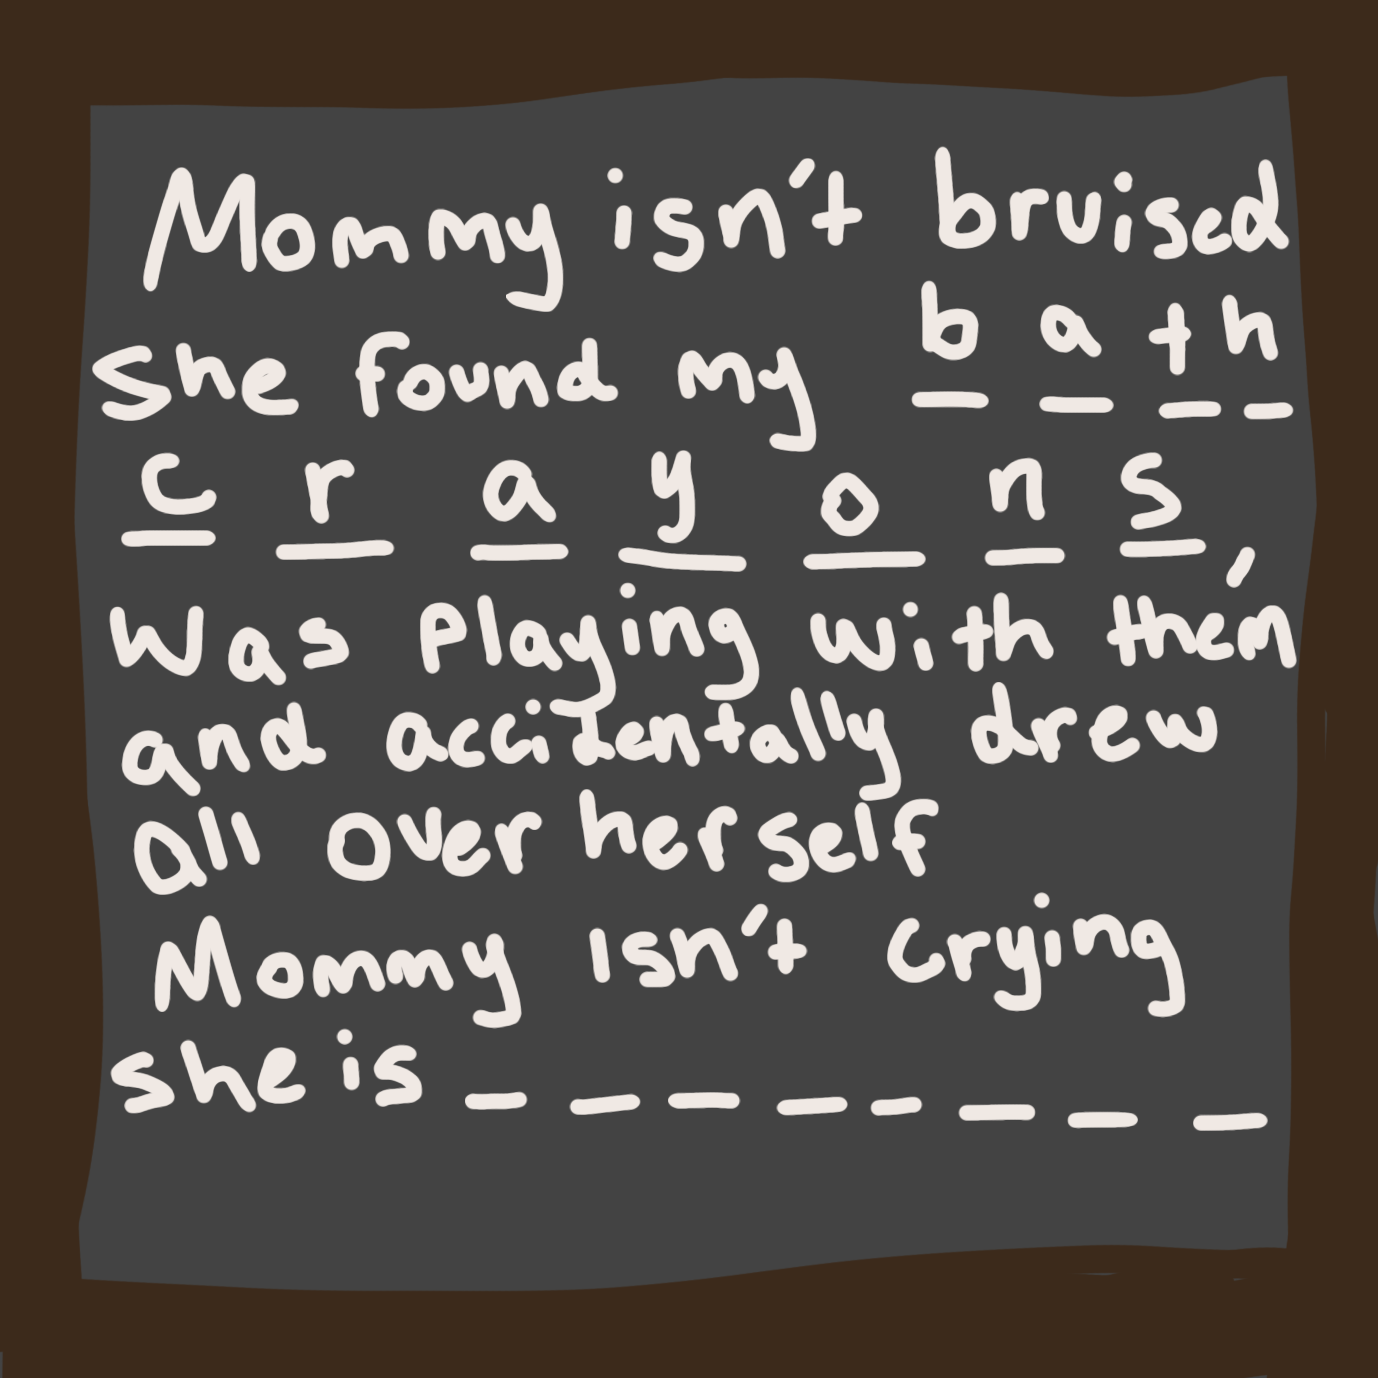 Mommy isn't bruised
She found my bath
crayons,
Was playing with them
and accidentally drew
all over herself
Mommy Isn't Crying
she is _ _ _ _ _ _ _ _